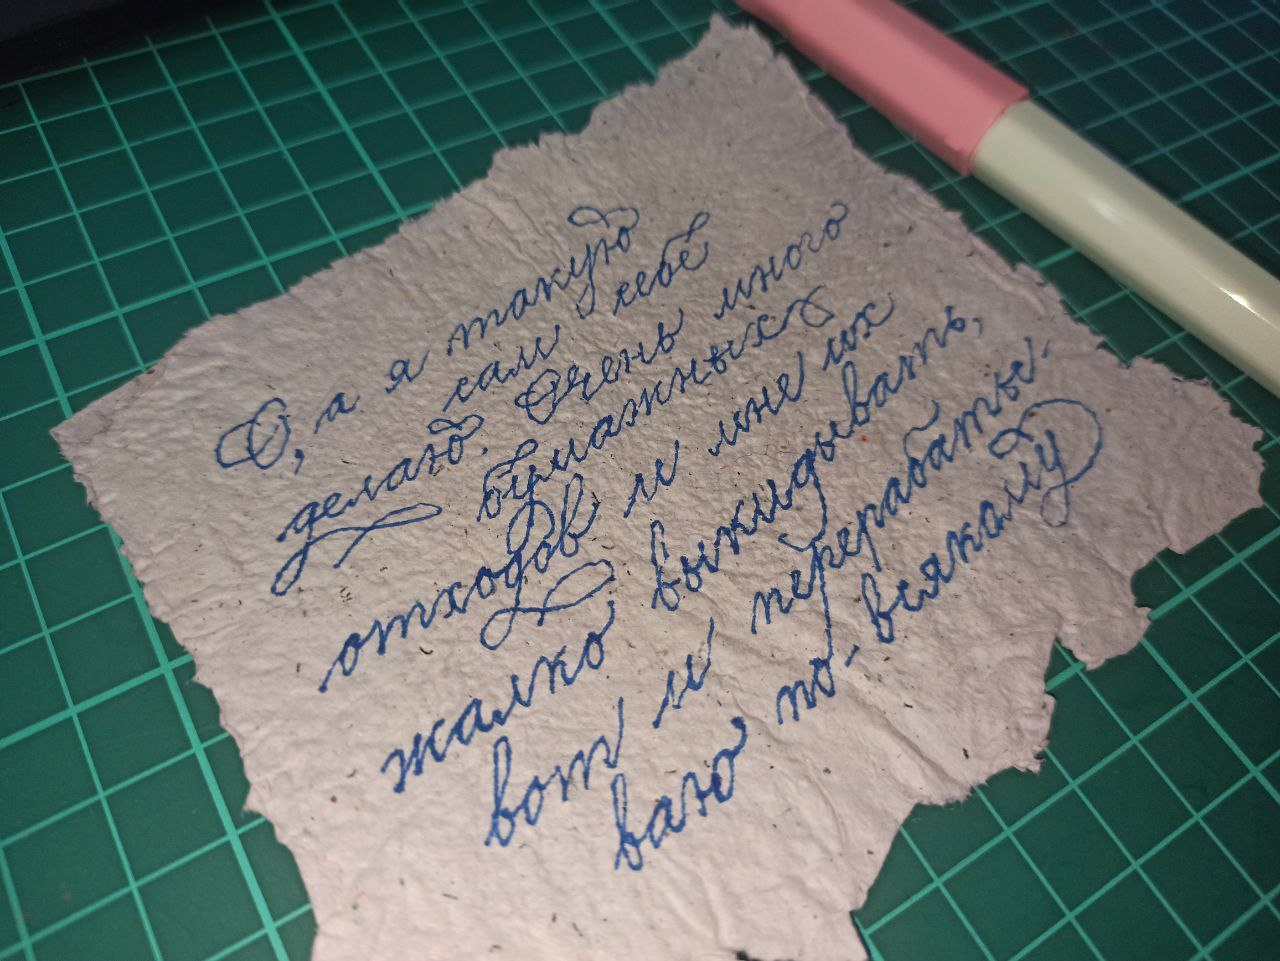 О, а я такую
сам себе
делаю. Очень много
бумажных
отходов и мне их
жалко выкидывать,
вот и перерабаты-
ваю по-всякому